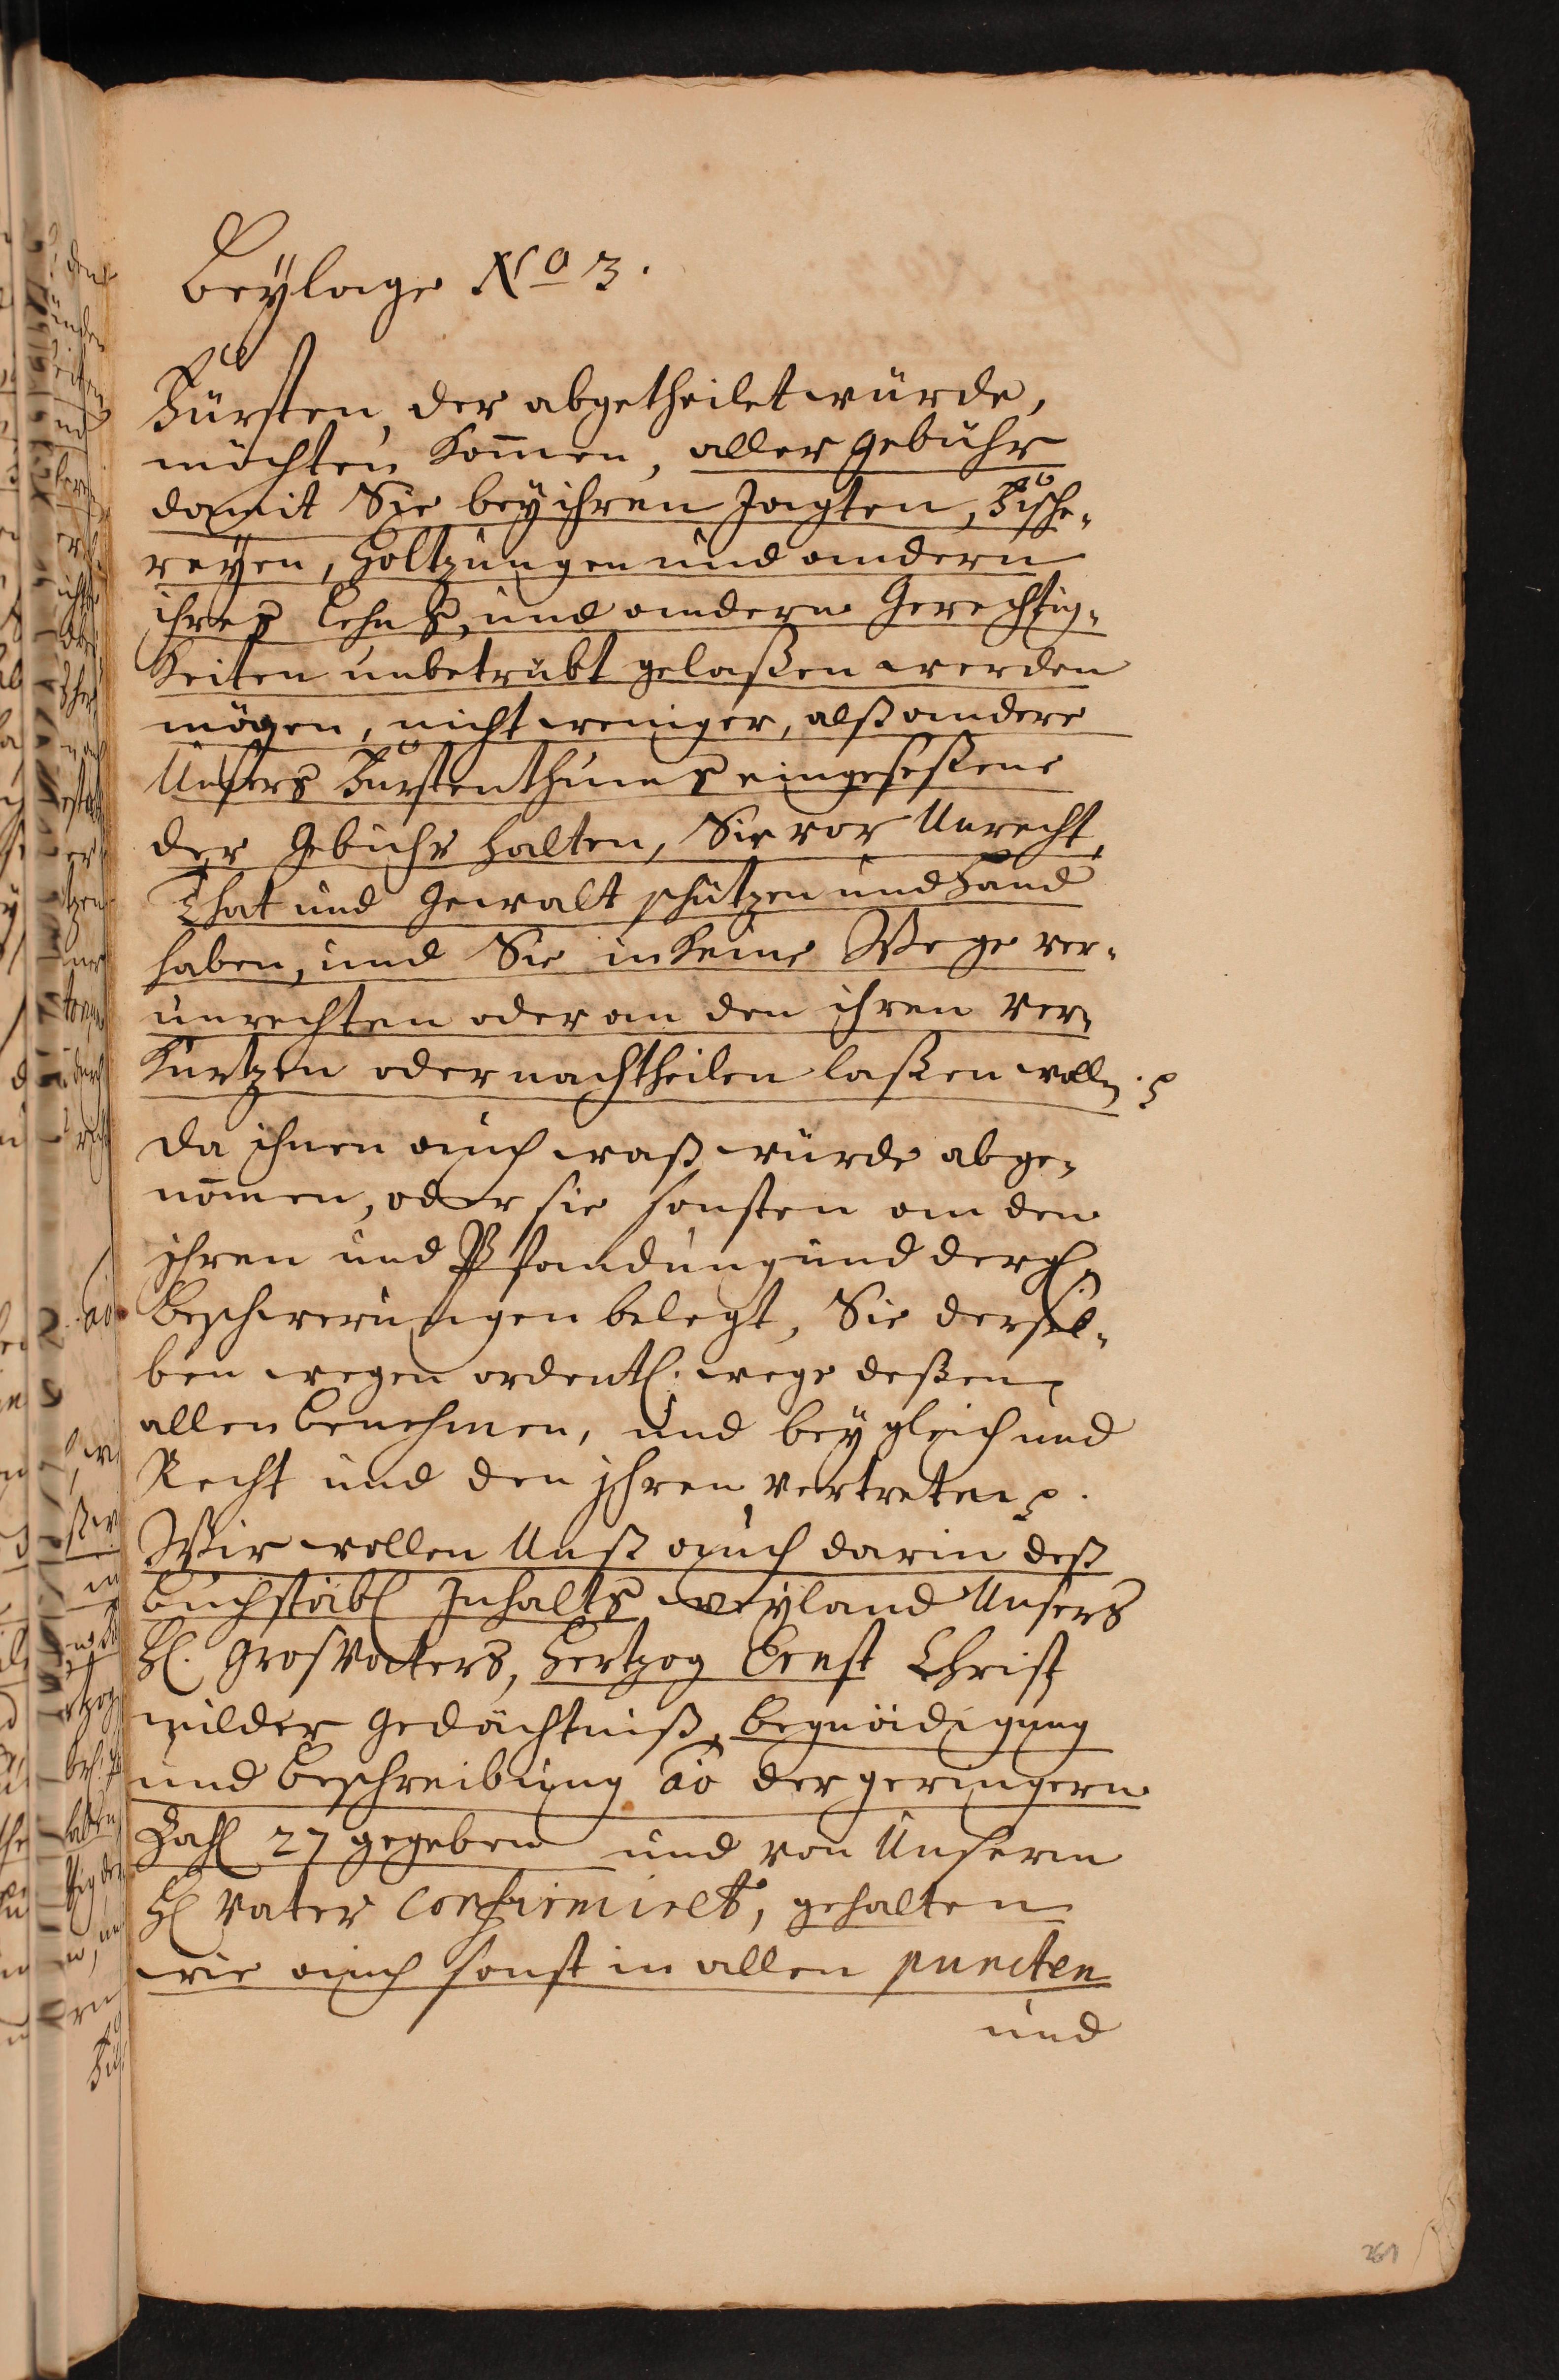 Beylage No 3.
Fürsten, der abgetheilet würde,
möchten kom̄en, aller gebühr
damit Sie bey ihren Jagten, Fische-
reyen, Holtzungen und andern
ihres Lehns, und andern Gerechtig-
keiten unbetrübt gelaßen werden
mögen, nicht weniger, alß andere
Unsers Fürstenthums eingeseßene
der Gebühr halten, Sie vor Unrecht,
That und Gewalt schützen und Hand
haben, und Sie in keine Wege ver-
unrechten oder an den ihren ver-
kürtzen oder nachtheilen laßen wolln.
da ihnen auch waß würde abge-
nom̄en, oder sie sonsten an den
ihren und Pfandung und dergl.
beschwerungen belegt, Sie dersel-
ben wegen ordentl. wege deßen
allen benehmen, und bey gleich und
Recht und den ihren vertreten
Wir wollen Unß auch darin deß
buchstäbl Inhalts weyland Unsers
Hl. GrosVatters, Hertzog Ernst Christ
milder Gedächtniß, begnädigung
und beschreibung ao der geringern
Zahl 27 gegeben und von Unserm
Hl Vater confirmiret, gehalten
wie auch sonst in allen puncten
und
261